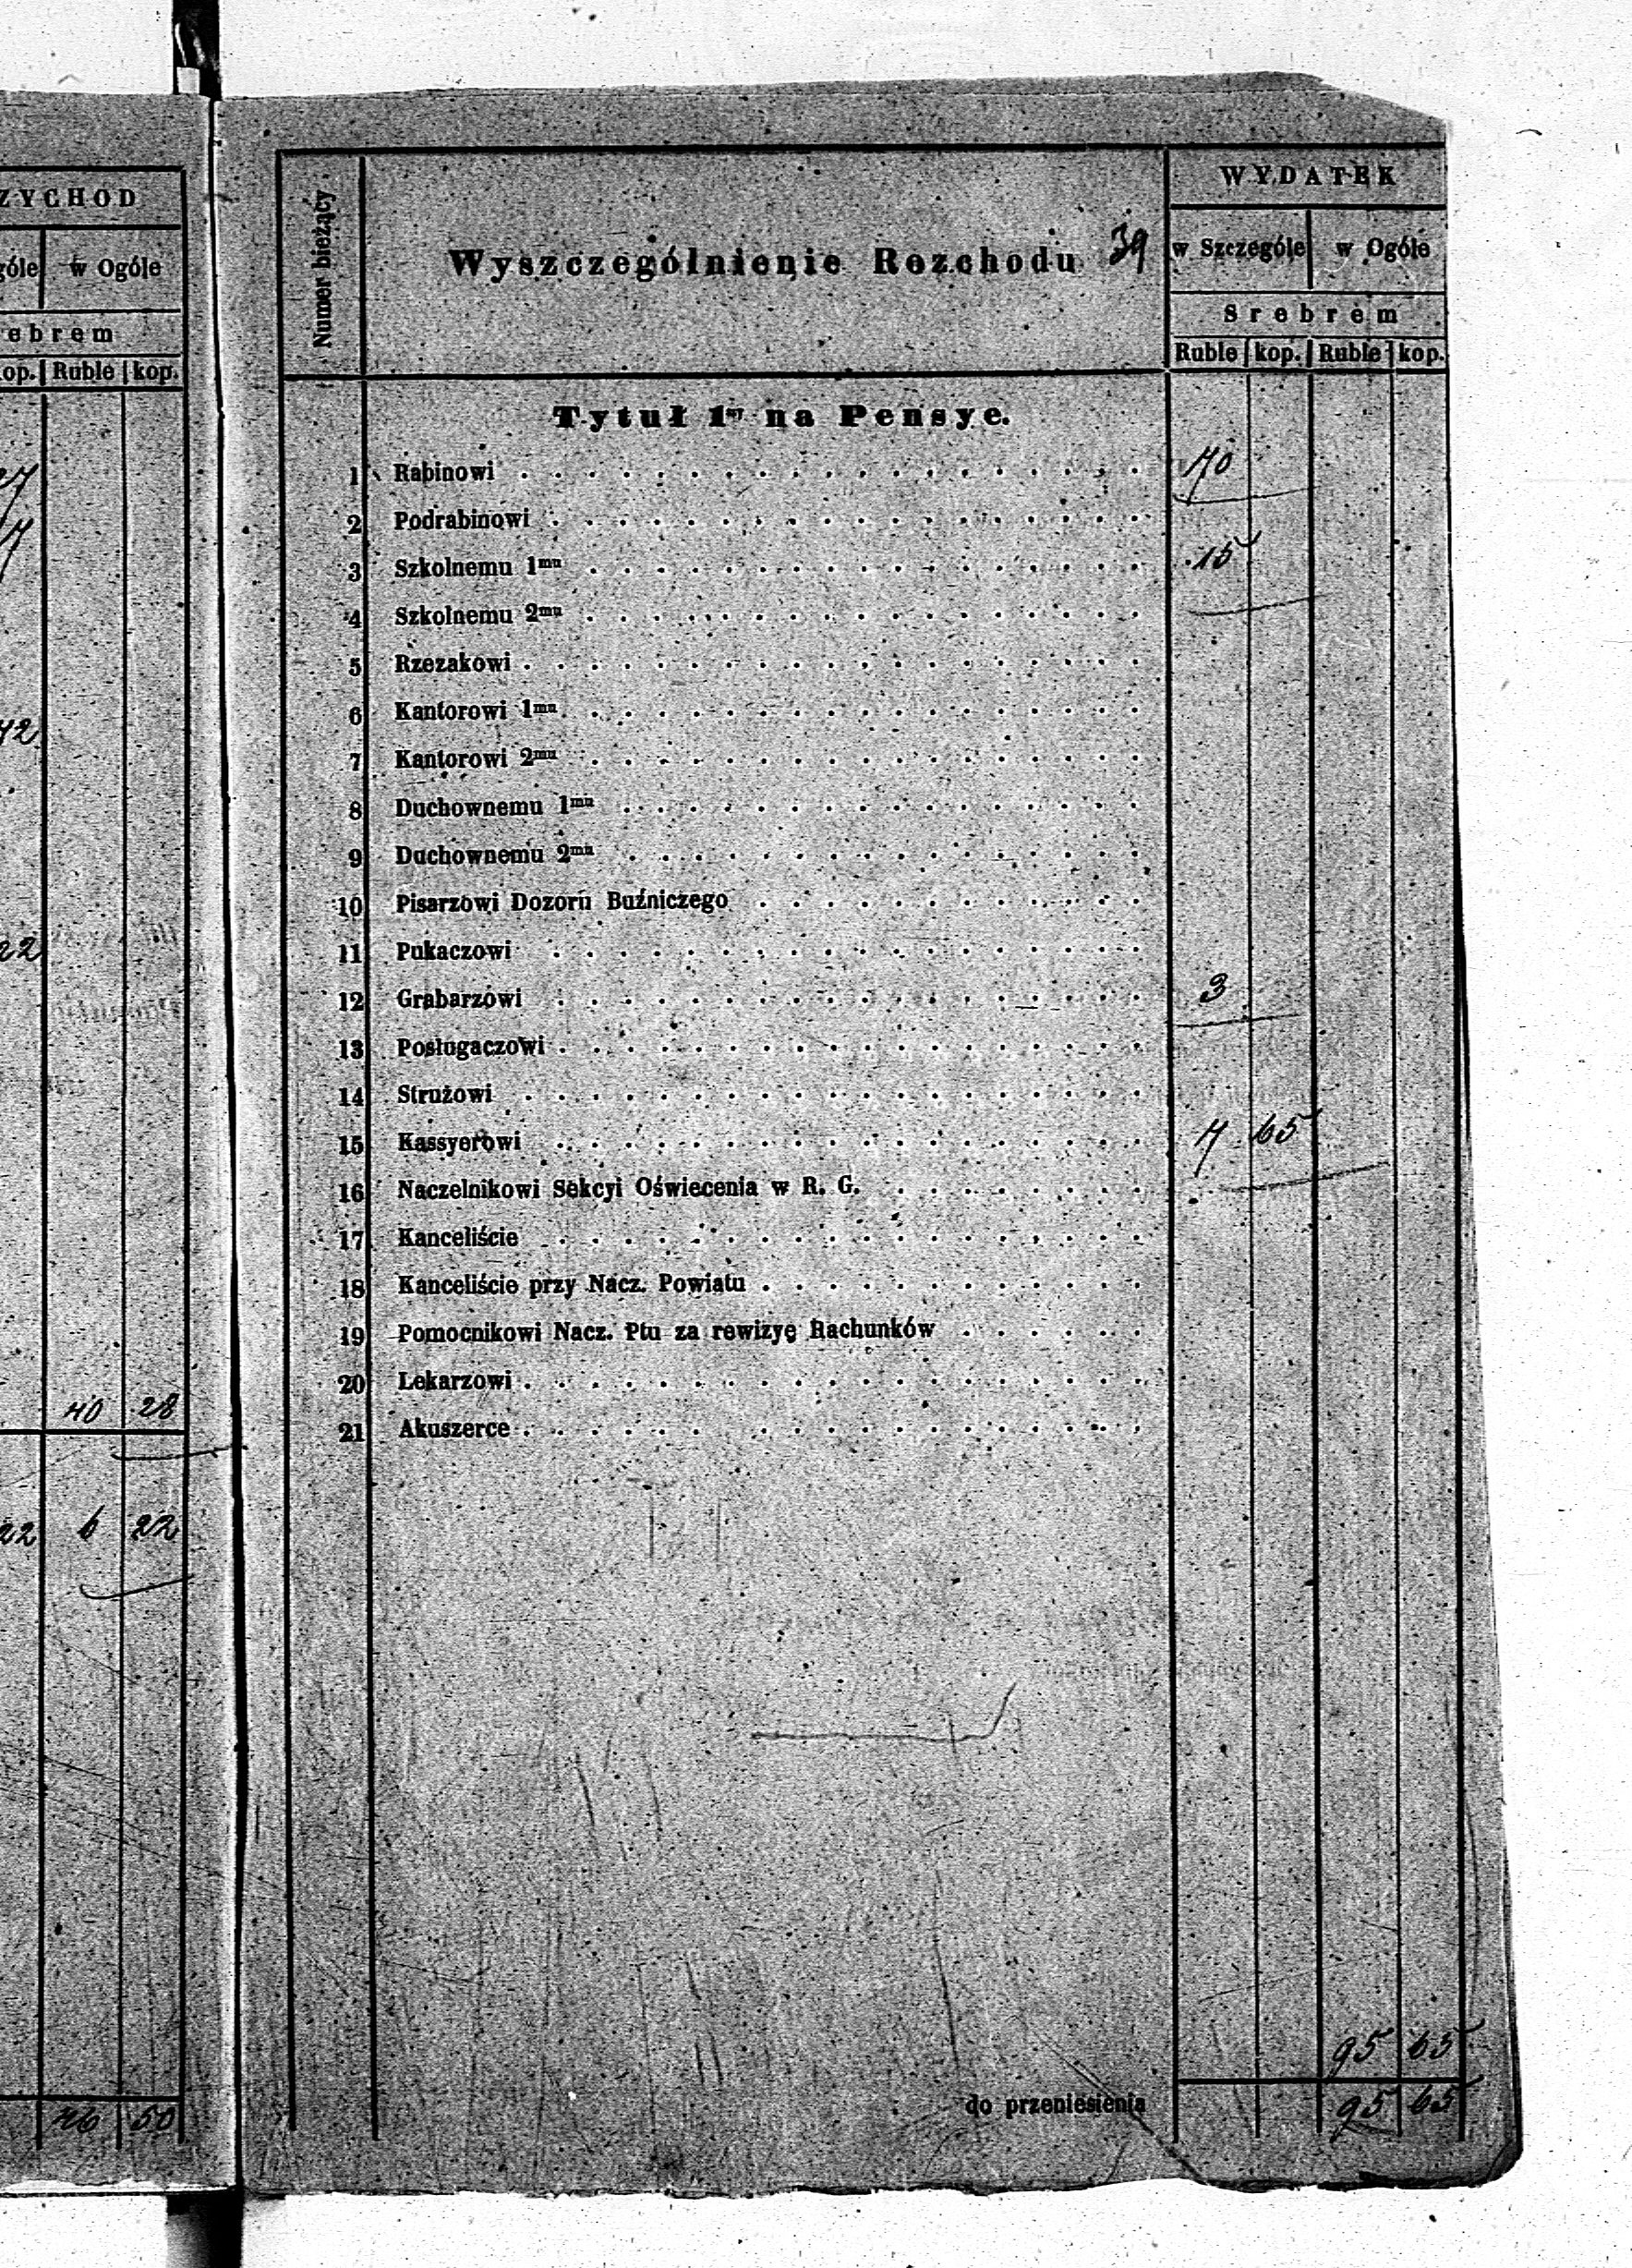 ZYCHOD
góle w Ogóle
ebrem
op. Ruble kop.
27
7
42
22
40 28
22 6 22
46 50
Numer bieżący
Wyszczególnienie Rozchodu
39
WYDATEK
w Szczególe w Ogóle
Srebrem
Ruble kop. Ruble kop.
Tytuł 1szy na Pensye.
1 Rabinowi . . . . . . . . . . 70
2 Podrabinowi . . . . . . . . . .
3 Szkolnemu 1mu . . . . . . . . . . 15
4 Szkolnemu 2mu . . . . . . . . . .
5 Rzezakowi . . . . . . . . . .
6 Kantorowi 1mu . . . . . . . . . .
7 Kantorowi 2mu . . . . . . . . . .
8 Duchownemu 1mu . . . . . . . . . .
9 Duchownemu 2mu . . . . . . . . . .
10 Pisarzowi Dozoru Buźniczego . . . . . . . . . .
11 Pukaczowi . . . . . . . . . .
12 Grabarzowi . . . . . . . . . . 3
13 Posługaczowi . . . . . . . . . .
14 Strużowi . . . . . . . . . .
15 Kassyerowi . . . . . . . . . . 7 65
16 Naczelnikowi Sekcyi Oświecenia w R. G. . . . . . . . .
17 Kanceliście . . . . . . . . . .
18 Kanceliście przy Nacz. Powiatu . . . . . . . . . .
19 Pomocnikowi Nacz. Ptu za rewizyę Rachunków . . . . . .
20 Lekarzowi . . . . . . . . . .
21 Akuszerce . . . . . . . . . .
95 65
do przeniesienia 95 65